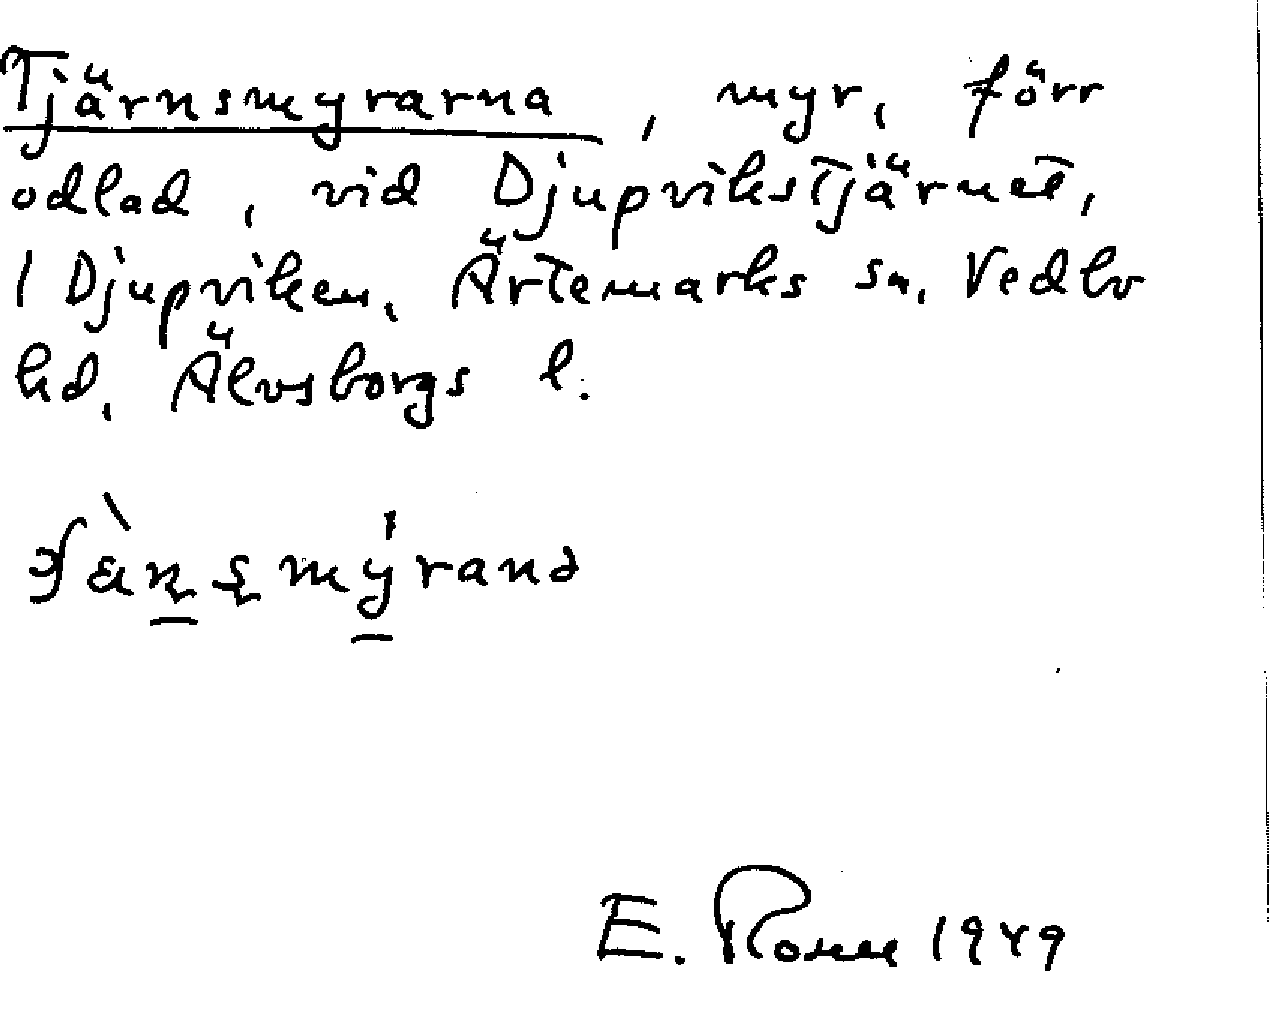 Tjärnsmyrarna, myr, förr
odlad, vid Djupvikstjärnet,
1 Djupviken, Ärtemarks sn, Vedbo
hd, Älvsborgs l.
E. 1949